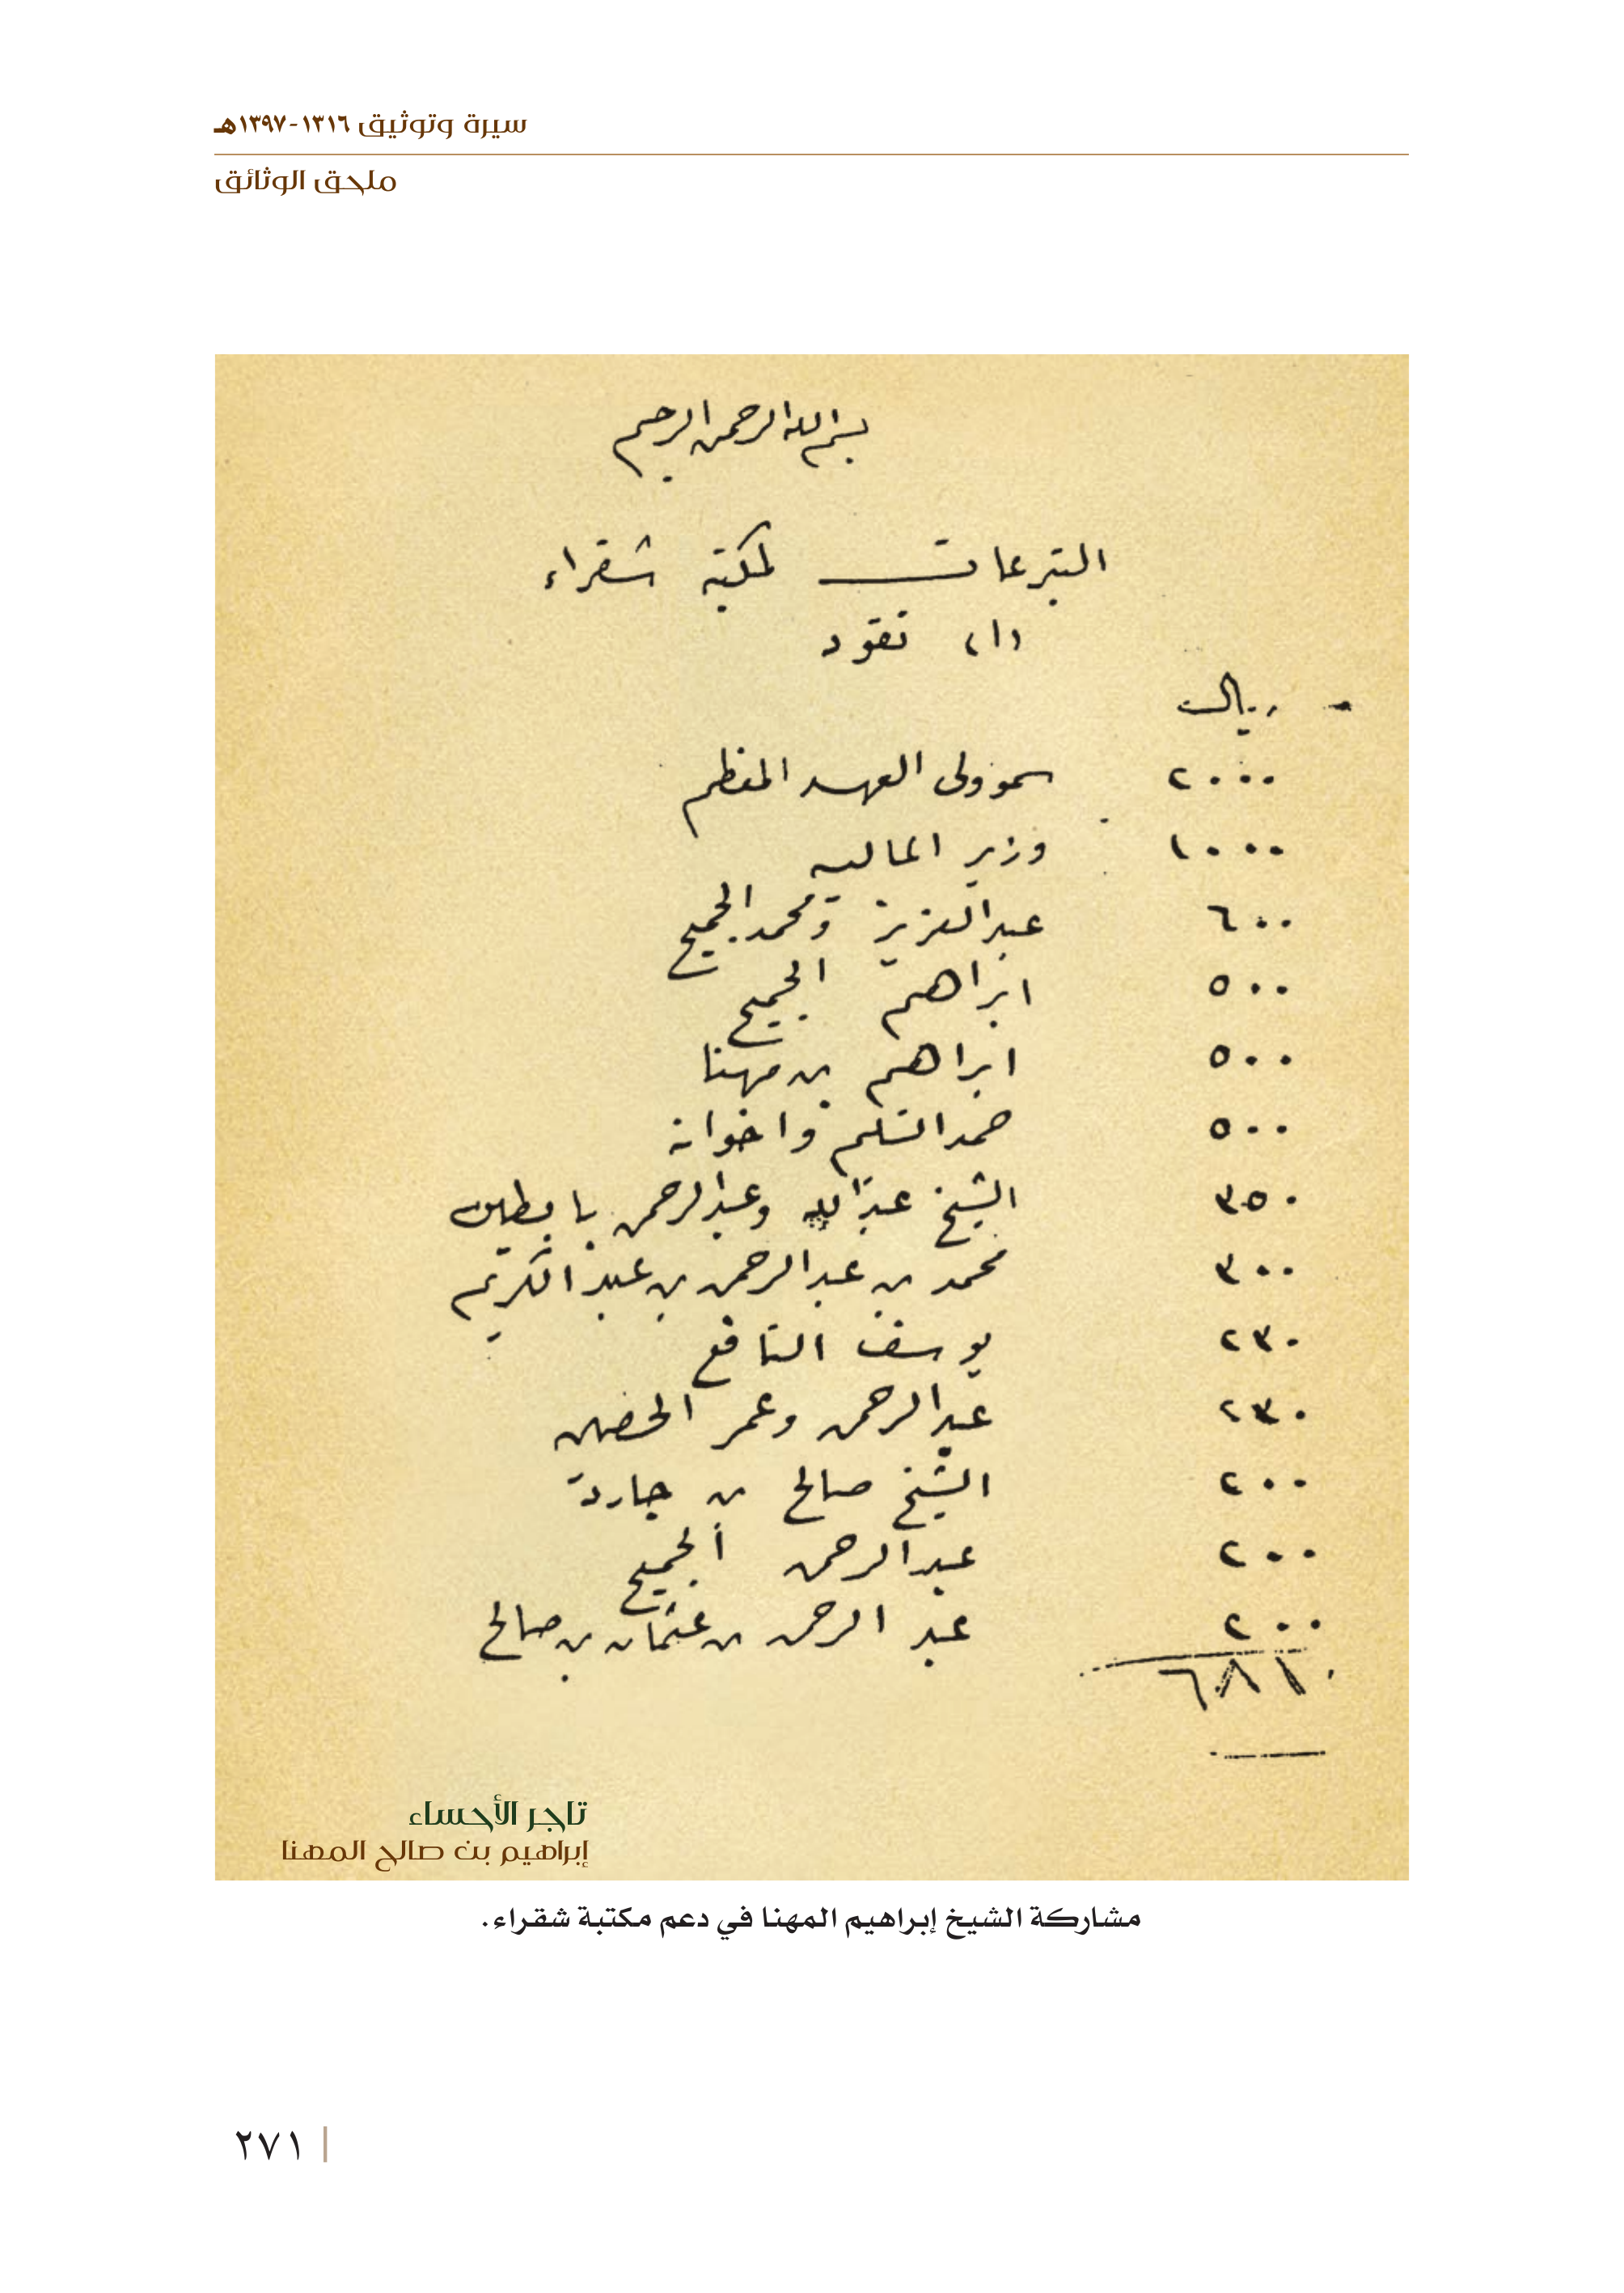 سيرة وتوثيق ١٣١٦-١٣٩٧هـ
ملحق الوثائق
بسم الله الرحمن الرحيم
التبرعات لمكتبة شقراء
(١) نقود
ريال
٢٠٠٠ سمو ولي العهد المعظم
١٠٠٠ وزير الماليه
٦٠٠ عبدالعزيز ومحمد الجميح
٥٠٠ ابراهيم الجميح
٥٠٠ ابراهيم بن مهنا
٥٠٠ حمد السليم واخوانه
٣٥٠ الشيخ عبدالله وعبدالرحمن بابطين
٣٠٠ محمد بن عبدالرحمن بن عبدالكريم
٢٣٠ يوسف النافع
٢٣٠ عبدالرحمن وعمر الحصين
٢٠٠ الشيخ صالح بن جارد
٢٠٠ عبدالرحمن الجميح
٢٠٠ عبدالرحمن بن عثمان بن صالح
٦٨١٠
تاجر الأحساء
إبراهيم بن صالح المهنا
مشاركة الشيخ إبراهيم المهنا في دعم مكتبة شقراء.
٢٧١